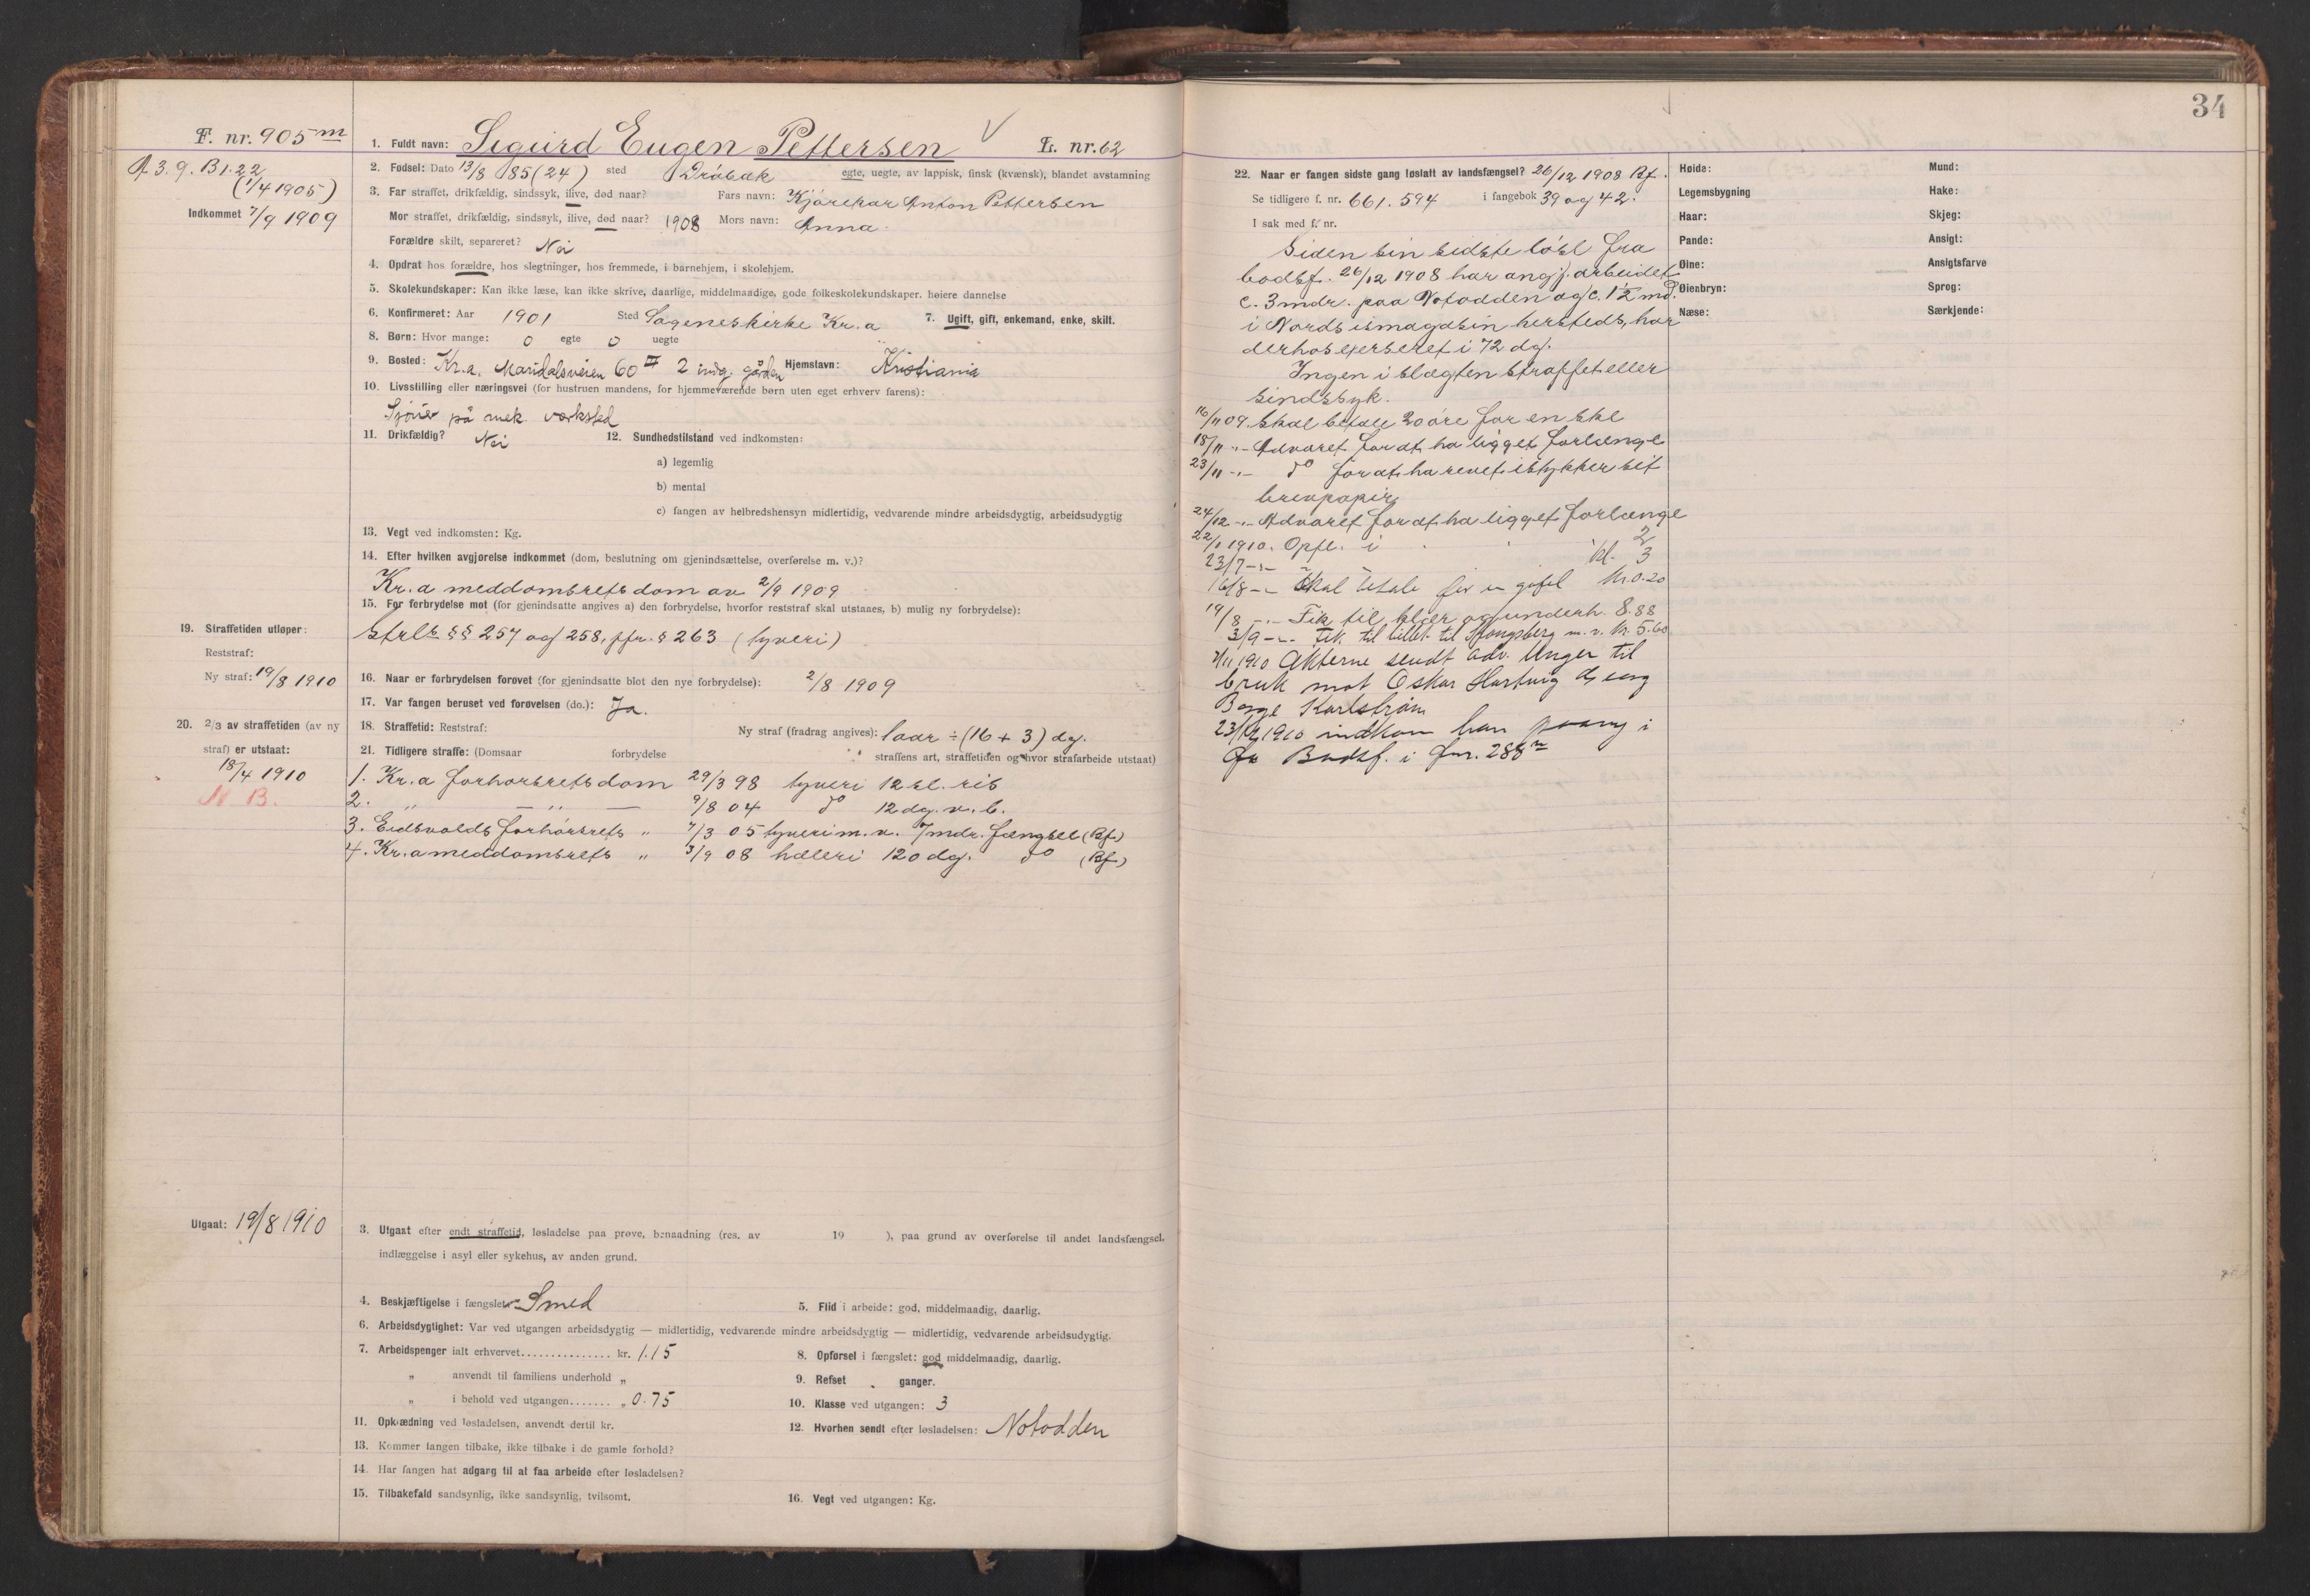 34
F. nr. 905 m
A 3. 9. B 1. 22
(1/4 1905)
Indkommet 7/9 1909
1. Fuldt navn: Sigurd Eugen Pettersen L. nr. 62
2. Fødsel: Dato 13/8 85 (24) sted Drøbak egte, uegte, av lappisk, finsk (kvænsk), blandet avstamning
3. Far straffet, drikfældig, sindssyk, ilive, død naar? Fars navn: Kjørekar Anton Pettersen
Mor straffet, drikfældig, sindssyk, ilive, død naar? 1908 Mors navn: Anna.
Forældre skilt, separeret? Nei
4. Opdrat hos forældre, hos slegtninger, hos fremmede, i barnehjem, i skolehjem.
5. Skolekundskaper: Kan ikke læse, kan ikke skrive, daarlige, middelmaadige, gode folkeskolekundskaper. høiere dannelse
6. Konfirmeret: Aar 1901 Sted Sagenes kirke Kr.a 7. Ugift, gift, enkemand, enke, skilt.
8. Børn: Hvor mange: 0 egte 0 uegte
9. Bosted: Kr.a. Maridalsveien 60 III 2 indg. gården Hjemstavn: Kristiania
10. Livsstilling eller næringsvei (for hustruen mandens, for hjemmeværende børn uten eget erhverv farens):
på mek. verksted
11. Drikfældig? Nei 12. Sundhedstilstand ved indkomsten:
a) legemlig
b) mental
c) fangen av helbredshensyn midlertidig, vedvarende mindre arbeidsdygtig, arbeidsudygtig
13. Vegt ved indkomsten: Kg.
14. Efter hvilken avgjørelse indkommet (dom, beslutning om gjenindsættelse, overførelse m. v.)?
Kr.a meddomsrets dom av 2/9 1909
15. For forbrydelse mot (for gjenindsatte angives a) den forbrydelse, hvorfor reststraf skal utstaaes, b) mulig ny forbrydelse):
Strl's §§ 257 og 258, jfr. § 263 (tyveri)
19. Straffetiden utløper:
Reststraf:
Ny straf: 19/8 1910
16. Naar er forbrydelsen forøvet (for gjenindsatte blot den nye forbrydelse): 2/8 1909
17. Var fangen beruset ved forøvelsen (do.): Ja.
20. 2/3 av straffetiden (av ny
straf) er utstaat:
18/4 1910
N B.
18. Straffetid: Reststraf: Ny straf (fradrag angives): 1 aar ÷ (16 + 3) dg.
21. Tidligere straffe: (Domsaar forbrydelse straffens art, straffetiden og hvor strafarbeide utstaat)
1. Kr.a forhørsrets dom 29/3 98 tyveri 12 sl. ris
2. " — " — 9/8 04 do 12 dg. v. b.
3. Eidsvolds forhørsrets " 7/3 05 tyveri m. v. 7 mdr. fængsel (Bf.)
4. Kr.a meddomsrets " 3/9 08 hæleri 120 dg. do (Bf.)
Utgaat: 19/8 1910
3. Utgaat efter endt straffetid, løsladelse paa prøve, benaadning (res. av 19 ), paa grund av overførelse til andet landsfængsel,
indlæggelse i asyl eller sykehus, av anden grund.
4. Beskjæftigelse i fængslet: Smed 5. Flid i arbeide: god, middelmaadig, daarlig.
6. Arbeidsdygtighet: Var ved utgangen arbeidsdygtig — midlertidig, vedvarende mindre arbeidsdygtig — midlertidig, vedvarende arbeidsudygtig.
7. Arbeidspenger ialt erhvervet............... kr. 1.15 8. Opførsel i fængslet: god middelmaadig, daarlig.
" anvendt til familiens underhold " 9. Refset ganger.
" i behold ved utgangen....... " 0.75 10. Klasse ved utgangen: 3
11. Opklædning ved løsladelsen, anvendt dertil kr. 12. Hvorhen sendt efter løsladelsen: Notodden
13. Kommer fangen tilbake, ikke tilbake i de gamle forhold?
14. Har fangen hat adgang til at faa arbeide efter løsladelsen?
15. Tilbakefald sandsynlig, ikke sandsynlig, tvilsomt. 16. Vegt ved utgangen: Kg.
22. Naar er fangen sidste gang løslatt av landsfængsel? 26/12 1908 Bf.
Se tidligere f. nr. 661. 594 i fangebok 39 og 42.
I sak med f. nr.
Siden sin sidste løsl fra
bodsf. 26/12 1908 har angj. arbeidet
c. 3 mdr. paa Notodden og c. 1 1/2 md.
i Nords ismagasin hersteds, har
derhos exerseret i 72 dg.
Ingen i slægten straffet eller
sindssyk.
16/11 09. Skal betale 20 øre for en skl
18/11 -"- Advaret for at ha ligget forlænge
23/11 -"- do for at ha revet i stykker sit
brevpapir
24/12 -"- Advaret for at ha ligget forlænge
22/1 1910. Opfl. i 2
23/7 -"- kl. 3
16/8 -"- Skal betale for en gafel kr 0.20
19/8 -"- Fik til klær og underh. 8.88
3/9 -"- Fik til billet til Kongsberg m. v. kr. 5.60
1910 Akterne sendt adv. Unger til
bruk mot Oskar Hartvig og
Karlstrøm
1910 indkom han paany i
Bodsf. i fnr. 288 n
Høide: Mund:
Legemsbygning Hake:
Haar: Skjeg:
Pande: Ansigt:
Øine: Ansigtsfarve
Øienbryn: Sprog:
Næse: Særkjende: